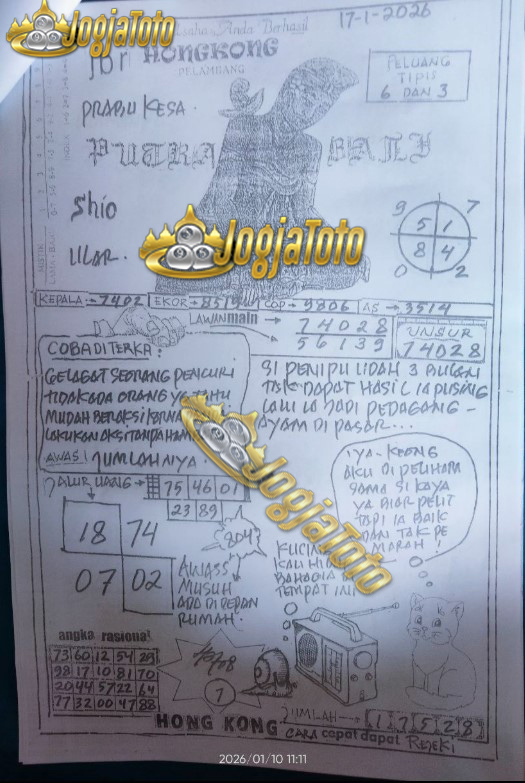 JogjaToto
usaha Anda Berhasil
17-1-2026
HONGKONG
PELAMBANG
PELUANG
TIPIS
6 DAN 3
PRABU KESA.
PUTRA BALI
Shio
ULAR.
9 7
5 1
8 4
0 2
JogjaToto
KEPALA:-7402 EKOR-8519 COP-9806 AS→3514
LAWAN main → 74028
56139
UNSUR
74028
COBA DITERKA:
GELAGAT SEORANG PENCURI
TIDAK ADA ORANG YG TAHU
MUDAH BERAKSI KETIKA
LAKUKAN AKSI TANPA
AWAS! JUMLAHNYA.
SI PENIPU LIDAH 3 BULAN
TAK DAPAT HASIL IA PUSING
LALU IA JADI PEDAGANG-
AYAM DI PASAR...
JALUR UANG→ 75 46 01
23 89
18 74
07 02
8041
JogjaToto
AWASS
MUSUH
ADA DI DEPAN
RUMAH.
IYA-KEONG
AKU DI PELIHARA
SAMA SI KAYA
YA BIAR PELIT
TAPI IA BAIK
DAN TAK PE
MARAH!
KUCIN
KAU HI
BAHAGIA
TEMPAT INI
angka rasional
73 60 12 54 29
98 17 10 81 70
20 44 57 22 64
77 32 00 47 88
7
JUMLAH→ 1 7 5 2 8
HONG KONG CARA cepat dapat REJEKI
2026/01/10 11:11